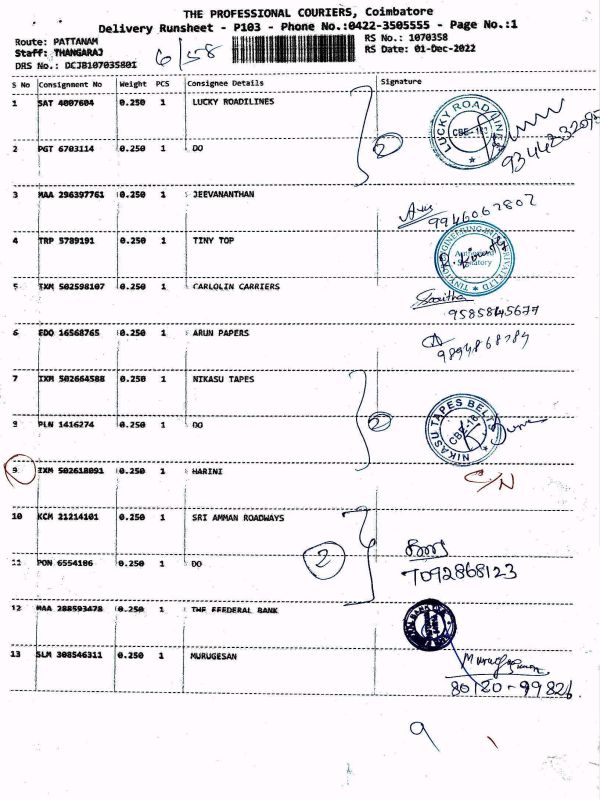 THE PROFESSIONAL COURIERS, Coimbatore
Delivery Runsheet - P103 - Phone No.:0422-3505555 - Page No.:1
Route: PATTANAM
Staff: THANGARAJ
DRS No.: DCJB107035801
6/58
RS No.: 1070358
RS Date: 01-Dec-2022
S No Consignment No Weight PCS Consignee Details Signature
1 SAT 4007604 0.250 1 LUCKY ROADILINES
LUCKY ROAD LINES
2 PGT 6703114 0.250 1 DO
2
9344232095
3 MAA 296397761 0.250 1 JEEVANANTHAN
9946062802
4 TRP 5789191 0.250 1 TINY TOP
Authorised Signatory
5 IXM 502598107 0.250 1 CARLOLIN CARRIERS
9585845677
6 EDO 16568765 0.250 1 ARUN PAPERS
7 IXM 502664588 0.250 1 NIKASU TAPES
NIKASU TAPES BELTS
CBE-18
8 PLN 1416274 0.250 1 DO
2
9 IXM 502618091 0.250 1 HARINI
C/N
10 KCM 21214101 0.250 1 SRI AMMAN ROADWAYS
11 PON 6554186 0.250 1 DO
2
7092868123
12 MAA 288593478 0.250 1 THE FEEDERAL BANK
13 SLM 308546311 0.250 1 MURUGESAN
80120-99826
9